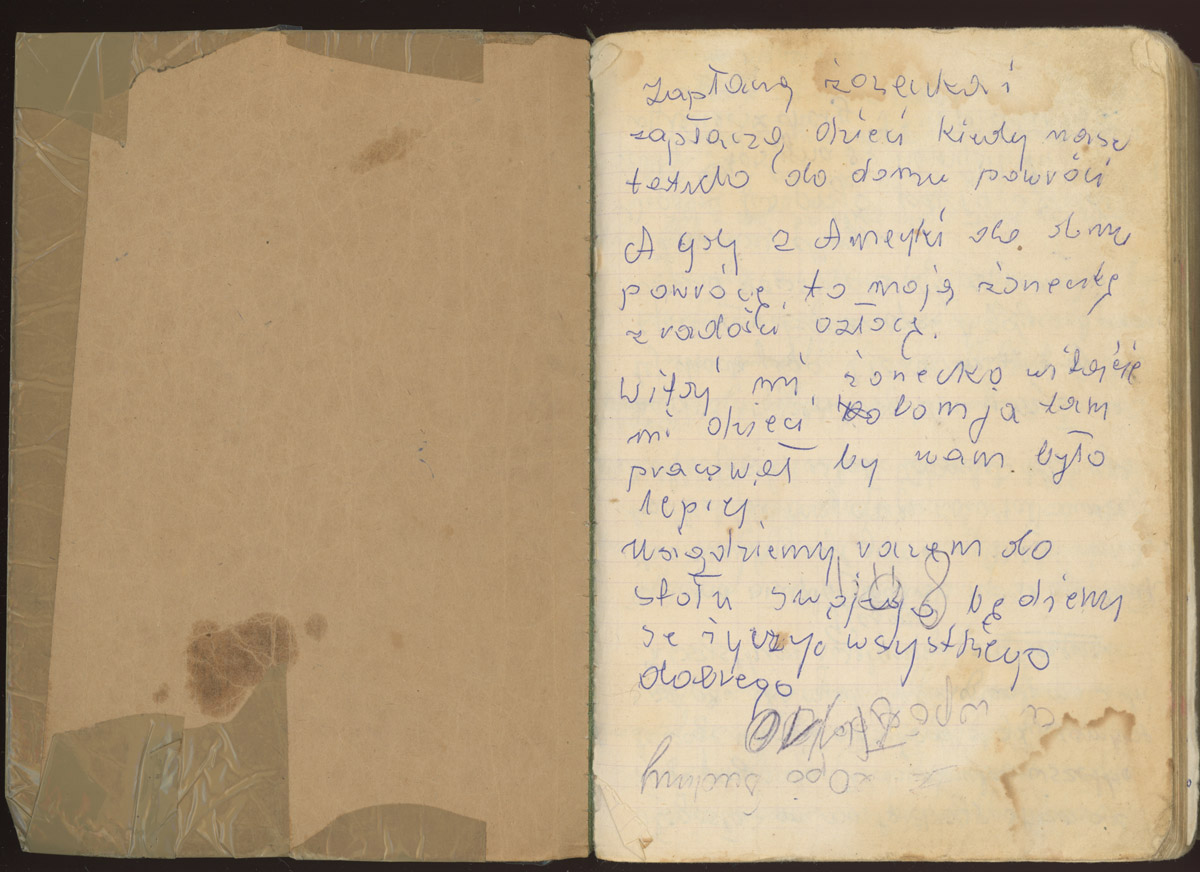 zapłaczą żonecka i
zapłaczą dzieci kiedy nasz
tatscho do domu powróci
A gdy z Ameryki do domu
powrócę, to moją żoneckę
z radości ozłocę.
witaj mi żonecko witajcie
mi dzieci bom ja tam
pracował by wam było
lepiej.
Usiądziemy razem do
stołu swojego będziemy
se życzyć wszystkiego
dobrego